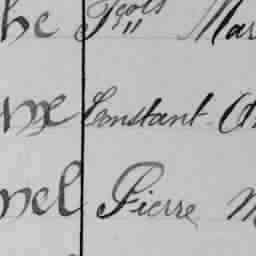 he Fçois Mar
ne Constant
nel Pierre M